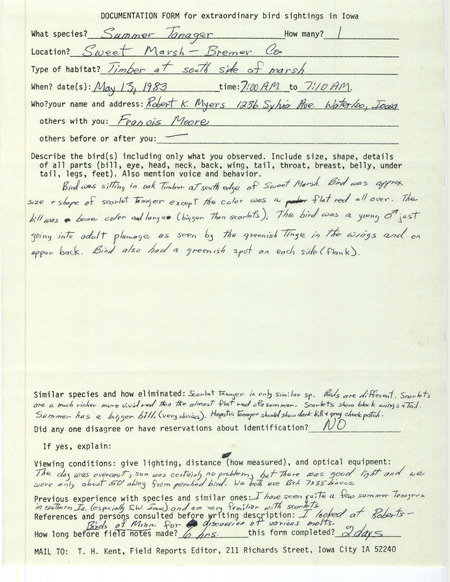 DOCUMENTATION FORM for extraordinary bird sightings in Iowa
What species? Summer Tanager How many? 1
Location? Sweet Marsh - Bremer Co
Type of habitat? Timber at south side of marsh
When? date(s): May 13, 1983 time: 7:00 AM to 7:10 AM.
Who? your name and address: Robert K. Myers 1236 Sylvia Ave. Waterloo, Iowa
others with you: Francis Moore
others before or after you: —
Describe the bird(s) including only what you observed. Include size, shape, details
of all parts (bill, eye, head, neck, back, wing, tail, throat, breast, belly, under
tail, legs, feet). Also mention voice and behavior.
Bird was sitting in oak Timber at south edge of Sweet Marsh Bird was approx.
size + shape of scarlet tanager except the color was a flat red all over. The
bill was bone color and large (bigger then scarlets). The bird was a young ♂ just
going into adult plumage as seen by the greenish Tinge in the wings and on
upper back. Bird also had a greenish spot on each side (flank).
Similar species and how eliminated: Scarlet Tanager is only similar sp. Reds are different. Scarlets
are a much richer more vivid red than the almost flat red of summer. Scarlets show black wings + Tail.
Summer has a bigger bill. (very obvious). Hepatic Tanager should show dark bill + gray cheek patch.
Did any one disagree or have reservations about identification? NO
If yes, explain:
Viewing conditions: give lighting, distance (how measured), and optical equipment:
The day was overcast, sun was certainly no problem, but there was good light and we
were only about 50' away from perched bird. We both use B+L 7x35 binocs.
Previous experience with species and similar ones: I have seen quite a few summer Tanagers
in southern Ia. (especially S.W. Iowa) and am very familiar with scarlets.
References and persons consulted before writing description: I looked at Roberts-
Birds of Minn. for discussion of various molts.
How long before field notes made? 6 hrs this form completed? 2 days
MAIL TO: T. H. Kent, Field Reports Editor, 211 Richards Street, Iowa City IA 52240